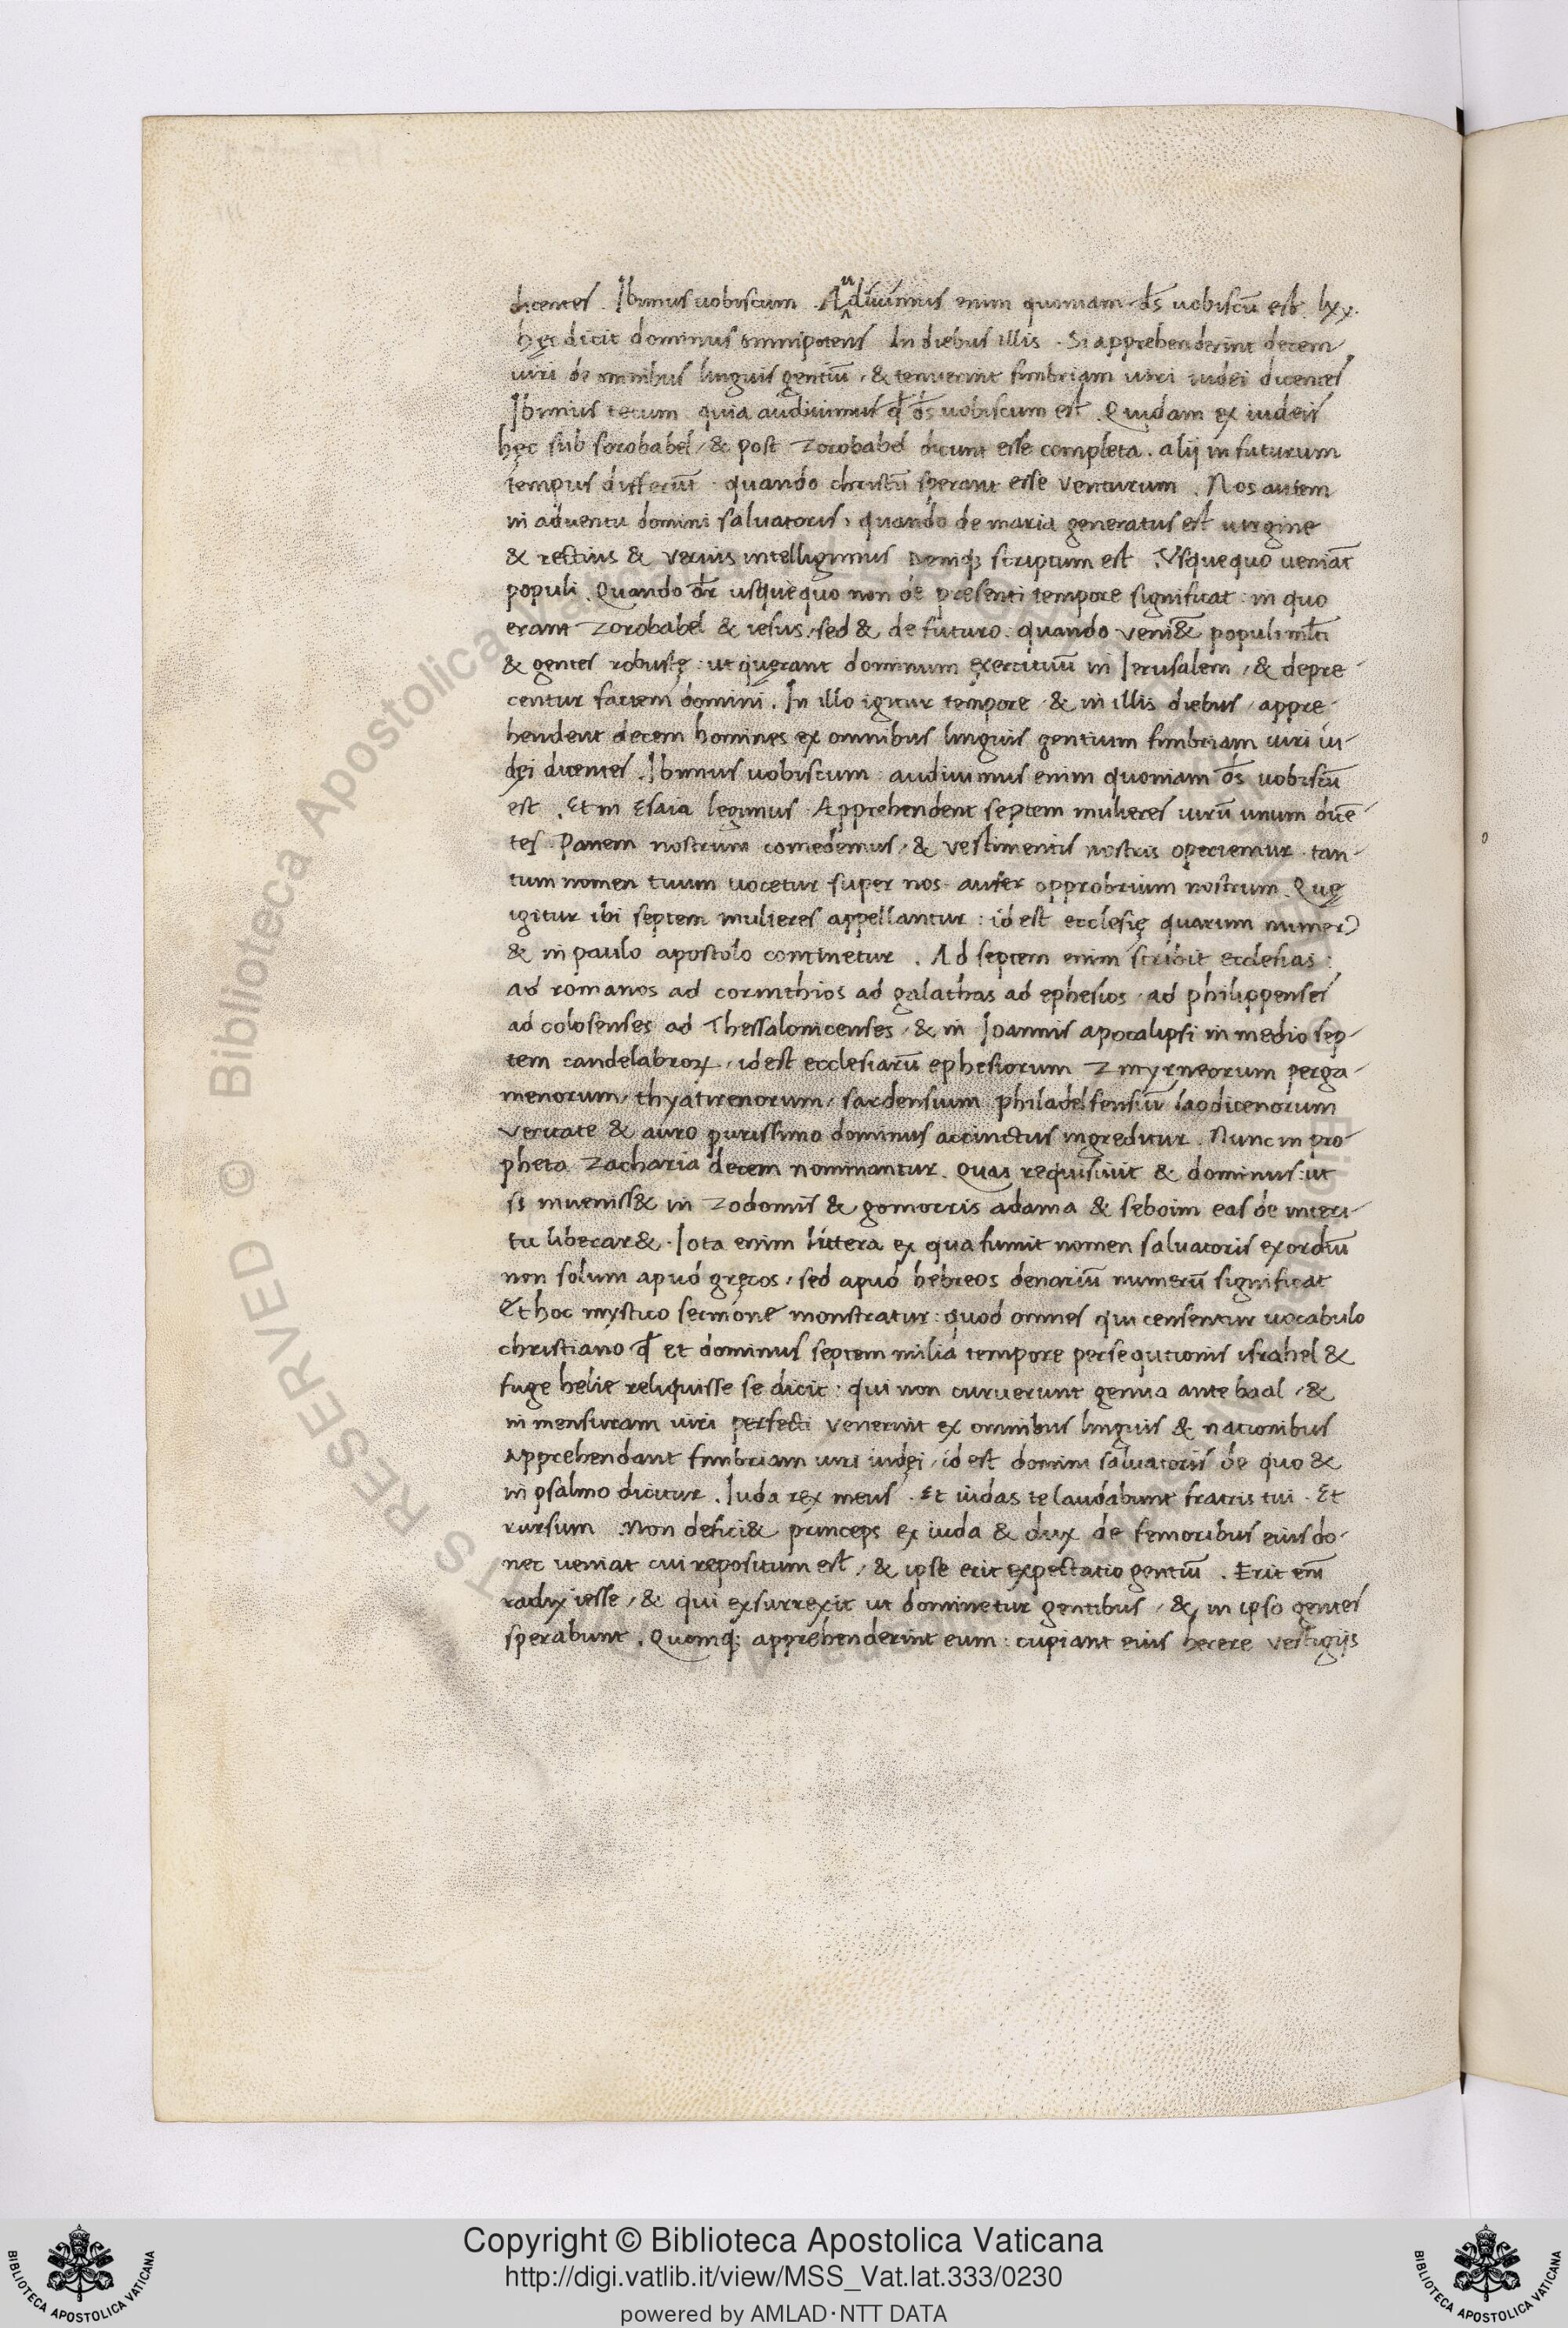 dicentes. Ibimus uobiscum. Audiuimus enim quoniam ds̄ uobiscū est. lxx.
hęc dicit dominus omnipotens In diebus illis. Si apprehenderint decem
uiri de omnibus linguis gentiū, & tenuerint fimbriam uiri iudei dicentes
Ibimus tecum quia audiuimus qđ ds̄ uobiscum est. Quidam ex iudeis
hęc sub sorobabel, & post Zorobabel dicunt esse completa. alij in futurum
tempus differūt quando christū sperant esse venturum. Nos autem
in aduentu domini saluatoris, quando de maria generatus est uirgine
& rectius & verius intelligimus Deniq; scriptum est. Vsquequo ueniāt
populi. Quando dr̄ usquequo non de presenti tempore significat: in quo
erant Zorobabel & iesus, sed & de futuro: quando veni& populi ml̄ti
& gentes robustę: ut quęrant dominum exercituū in Ierusalem, & depre-
centur faciem domini. In illo igitur tempore & in illis diebus, appre-
hendent decem homines ex omnibus linguis gentium fimbriam uiri iu-
dęi dicentes. Ibimus uobiscum: audiuimus enim quoniam ds̄ uobiscū
est. Et in Esaia legimus. Apprehendent septem mulieres uirū unum dicē-
tes. Panem nostrum comedemus, & vestimentis nostris operiemur tan-
tum nomen tuum uocetur super nos aufer opprobrium nostrum. Quę
igitur ibi septem mulieres appellantur: id est ecclesię quarum numer᾽
& in paulo apostolo continetur. Ad septem enim scribit ecclesias:
ad romanos ad corinthios ad galathas ad ephesios, ad philippenses
ad colosenses ad Thessalonicenses, & in Ioannis apocalipsi in medio sep-
tem candelabroꝝ, id est ecclesiarū ephesiorum Zmyrneorum perga-
menorum, thyatirenorum, sardensium philadelfensiū laodicenorum
veritate & auro purissimo dominus accinctus ingreditur. Nunc in pro-
pheta Zacharia decem nominantur. Quas requisiuit & dominus: ut
si inueniss& in Zodomis & gomorris adama & seboim eas de interi-
tu liberar&. Iota enim littera ex qua sumit nomen saluatoris exordiū
non solum apud gręcos, sed apud hebreos denariū numerū significat
Et hoc mystico sermone monstratur: quod omnes qui censentur uocabulo
christiano qđ et dominus septem milia tempore persequtionis israhel &
fuge helie reliquisse se dicit: qui non curuerunt genua ante baal, &
in mensuram uiri perfecti venerint ex omnibus linguis & nationibus
apprehendant fimbriam uiri iudęi, id est domini saluatoris de quo &
in psalmo dicitur. Iuda rex meus. Et iudas te laudabunt fratris tui. Et
rursum. Non defici& princeps ex iuda & dux de femoribus eius do-
nec ueniat cui repositum est, & ipse erit expectatio gentiū. Erit eni᷑
radix iesse, & qui exsurrexit ut dominetur gentibus, & in ipso gentes
sperabunt. Quomq; apprehenderint eum: cupiant eius herere vestigijs
Copyright © Biblioteca Apostolica Vaticana
http://digi.vatlib.it/view/MSS_Vat.lat.333/0230
powered by AMLAD·NTT DATA
BIBLIOTECA APOSTOLICA VATICANA
BIBLIOTECA APOSTOLICA VATICANA